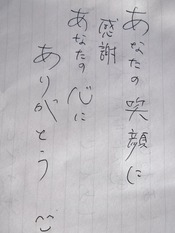 あなたの笑顔に
感謝
あなたの心に
ありがとう